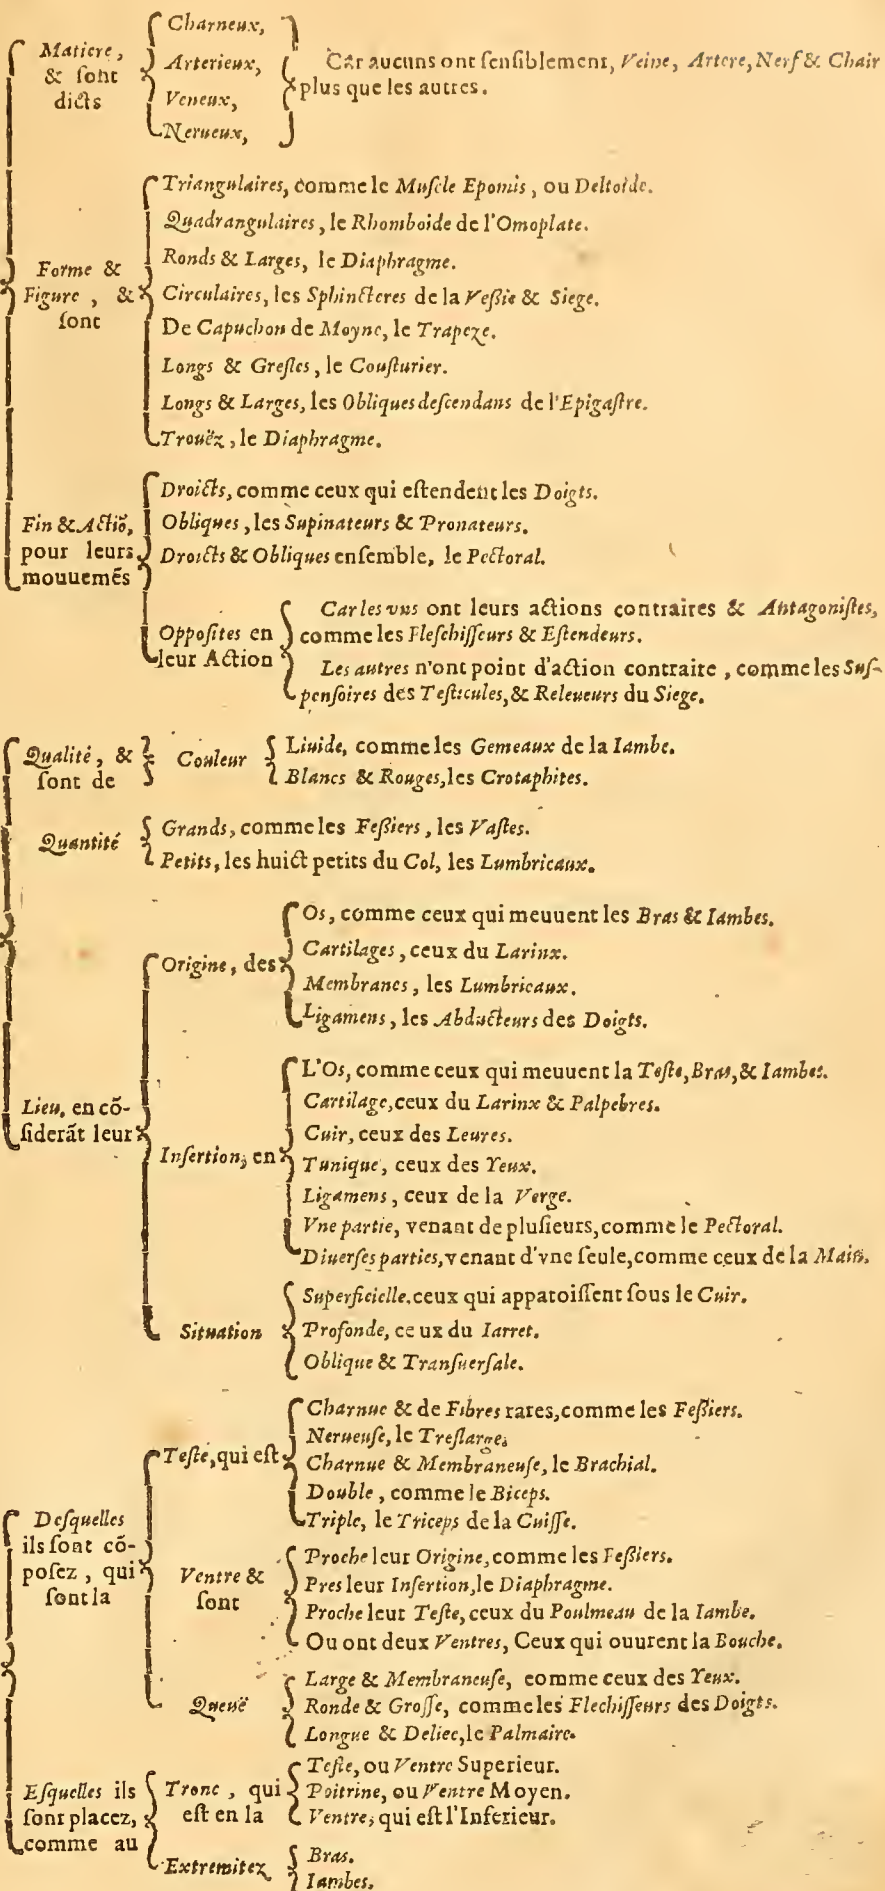 Matiere,
& ſont
dicts
Charneux,
Arterieux,
Veneux,
Nerueux,
Car aucuns ont ſenſiblement, Veine, Artere, Nerf & Chair
plus que les autres.
Forme &
Figure, &
ſont
Triangulaires, comme le Muſcle Epomis, ou Deltoide.
Quadrangulaires, le Rhomboide de l'Omoplate.
Ronds & Larges, le Diaphragme.
Circulaires, les Sphincteres de la Veſſie & Siege.
De Capuchon de Moyne, le Trapeze.
Longs & Greſles, le Couſturier.
Longs & Larges, les Obliques deſcendans de l'Epigaſtre.
Trouëz, le Diaphragme.
Fin & Actiõ,
pour leurs
mouuemẽs
Droicts, comme ceux qui eſtendent les Doigts.
Obliques, les Supinateurs & Pronateurs.
Droicts & Obliques enſemble, le Pectoral.
Oppoſites en
leur Action
Car les vns ont leurs actions contraires & Antagoniſtes,
comme les Fleſchiſſeurs & Eſtendeurs.
Les autres n'ont point d'action contraire, comme les Suſ-
penſoires des Teſticules, & Releueurs du Siege.
Qualité, &
ſont de
Couleur
Liuide, comme les Gemeaux de la Iambe.
Blancs & Rouges, les Crotaphites.
Quantité
Grands, comme les Feſſiers, les Vaſtes.
Petits, les huict petits du Col, les Lumbricaux.
Lieu, en cõ-
ſiderãt leur
Origine, des
Os, comme ceux qui meuuent les Bras & Iambes.
Cartilages, ceux du Larinx.
Membranes, les Lumbricaux.
Ligamens, les Abducteurs des Doigts.
Inſertion, en
L'Os, comme ceux qui meuuent la Teſte, Bras, & Iambes.
Cartilage, ceux du Larinx & Palpebres.
Cuir, ceux des Leures.
Tunique, ceux des Yeux.
Ligamens, ceux de la Verge.
Vne partie, venant de pluſieurs, comme le Pectoral.
Diuerſes parties, venant d'vne ſeule, comme ceux de la Main.
Situation
Superficielle, ceux qui apparoiſſent ſous le Cuir.
Profonde, ceux du Iarret.
Oblique & Tranſuerſale.
Deſquelles
ils ſont cõ-
poſez, qui
ſont la
Teſte, qui eſt
Charnue & de Fibres rares, comme les Feſſiers.
Nerueuſe, le Treſlarge.
Charnue & Membraneuſe, le Brachial.
Double, comme le Biceps.
Triple, le Triceps de la Cuiſſe.
Ventre &
ſont
Proche leur Origine, comme les Feſſiers.
Pres leur Inſertion, le Diaphragme.
Proche leur Teſte, ceux du Poulmeau de la Iambe.
Ou ont deux Ventres, Ceux qui ouurent la Bouche.
Queuë
Large & Membraneuſe, comme ceux des Yeux.
Ronde & Groſſe, comme les Flechiſſeurs des Doigts.
Longue & Deliee, le Palmaire.
Eſquelles ils
ſont placez,
comme au
Tronc, qui
eſt en la
Teſte, ou Ventre Superieur.
Poitrine, ou Ventre Moyen.
Ventre, qui eſt l'Inferieur.
Extremitez
Bras.
Iambes.